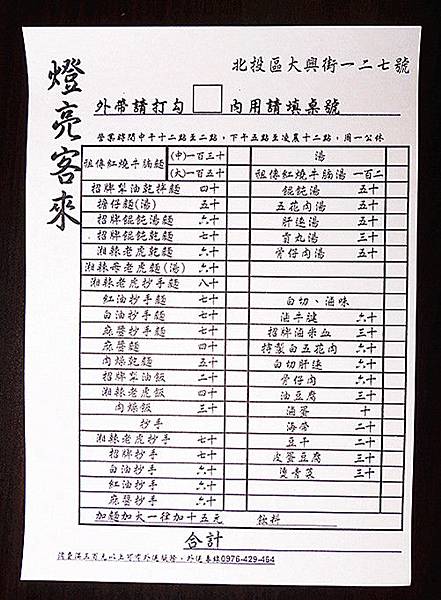 燈亮客來
北投區大興街一二七號
外帶請打勾 內用請填桌號
營業時間中午十二點至二點，下午五點至凌晨十二點，周一公休
祖傳紅燒牛腩麵 (中)一百三十
(大)一百五十
招牌梨油乾拌麵 四十
擔仔麵(湯) 五十
招牌餛飩湯麵 六十
招牌餛飩乾麵 七十
湘辣老虎乾麵 六十
湘辣母老虎麵(湯) 六十
湘辣老虎抄手麵 八十
紅油抄手麵 七十
白油抄手麵 七十
麻醬抄手麵 七十
麻醬麵 四十
肉燥乾麵 五十
招牌梨油飯 二十
湘辣老虎飯 四十
肉燥飯 三十
抄手
湘辣老虎抄手 七十
招牌抄手 七十
白油抄手 六十
紅油抄手 六十
麻醬抄手 六十
湯
祖傳紅燒牛腩湯 一百二
餛飩湯 五十
五花肉湯 五十
肝連湯 五十
貢丸湯 三十
骨仔肉湯 五十
白切、滷味
滷牛腱 六十
招牌滷米血 三十
特製白五花肉 六十
白切肝連 六十
骨仔肉 六十
油豆腐 三十
滷蛋 十
海帶 二十
豆干 二十
皮蛋豆腐 三十
燙青菜 三十
加麵加大一律加十五元 飲料
合計
消費滿三百元以上可有外送服務，外送專線0976-429-464